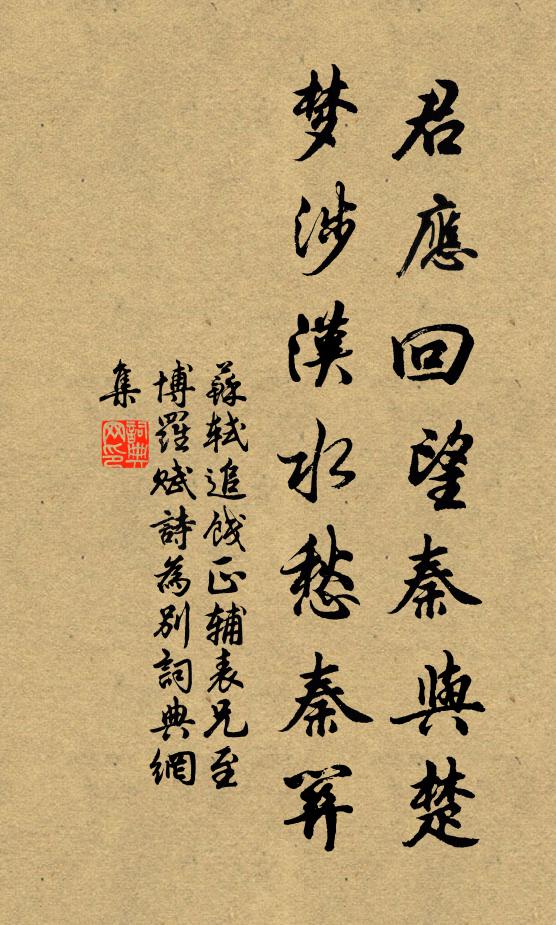 君應回望秦與楚
梦涉漢水愁秦關
蘇軾追餞正輔表兄至
博羅賦詩為別詞典網
集
詞典
网印